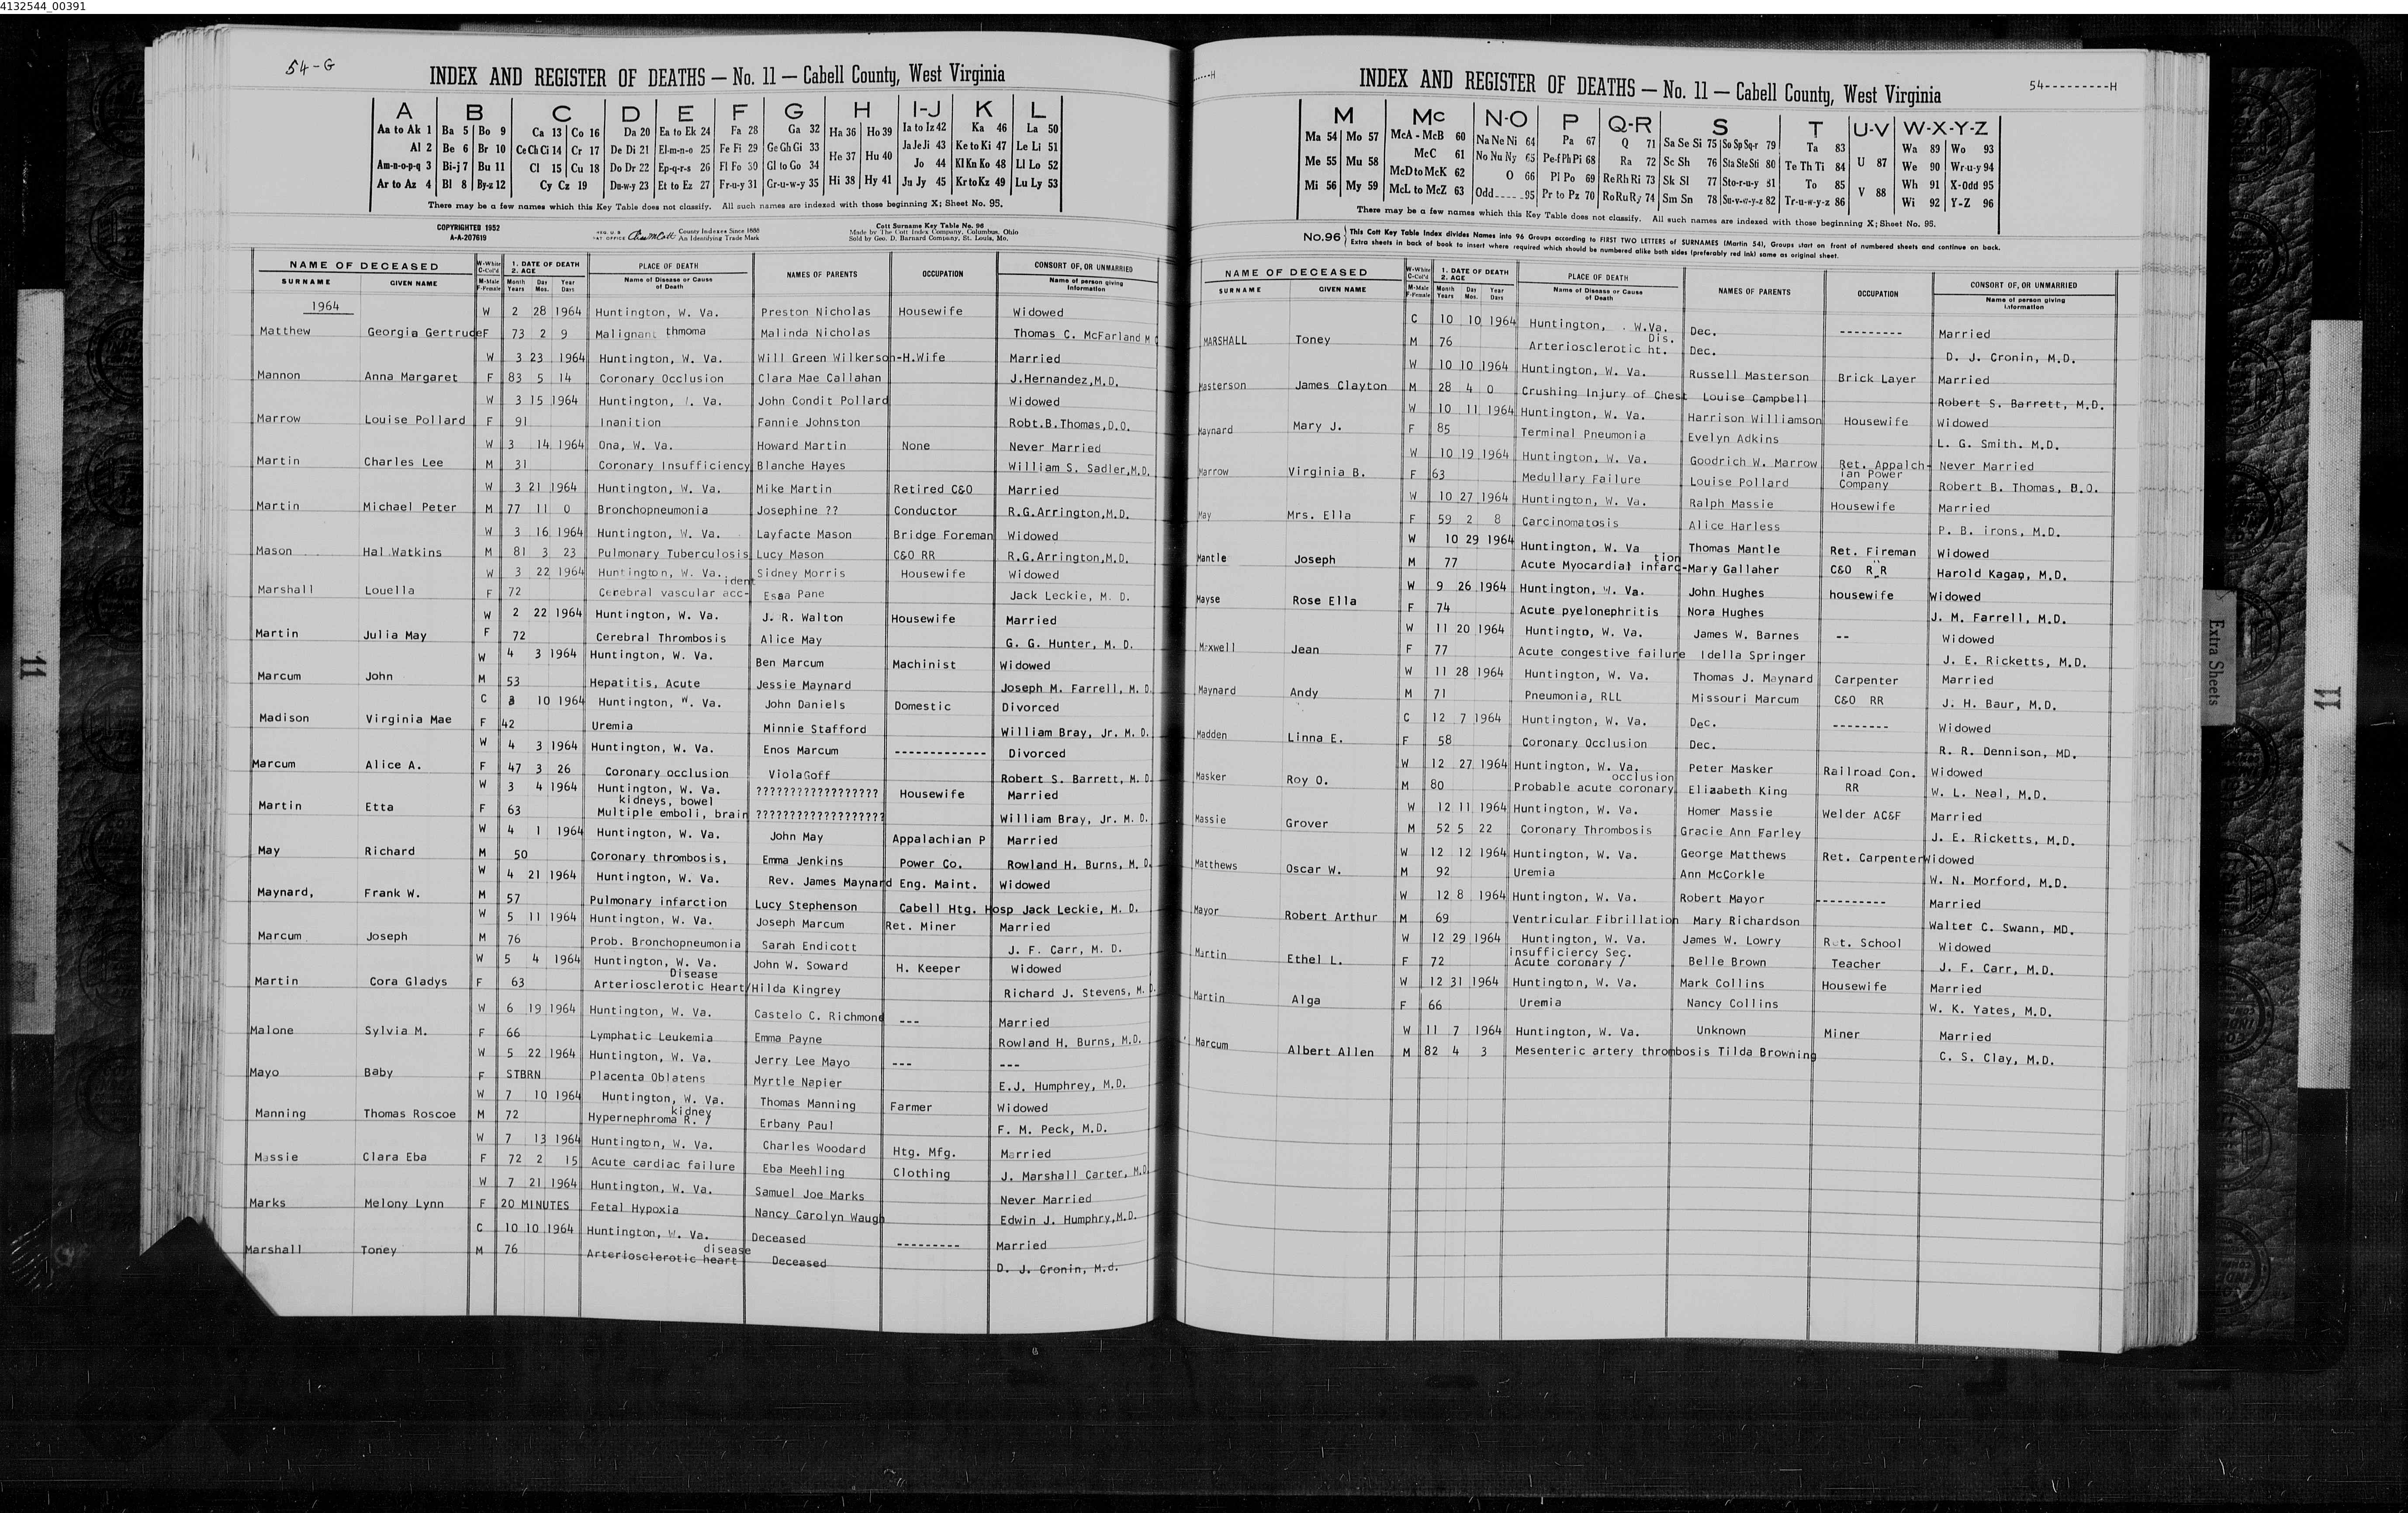 4132544_00391
54-G
INDEX AND REGISTER OF DEATHS — No. 11 — Cabell County, West Virginia
A B C D E F G H I-J K L
Aa to Ak 1 Ba 5 Bo 9 Ca 13 Co 16 Da 20 Ea to Ek 24 Fa 28 Ga 32 Ha 36 Ho 39 Ia to Iz 42 Ka 46 La 50
Al 2 Be 6 Br 10 Ce Ch Ci 14 Cr 17 De Di 21 El-m-n-o 25 Fe Fi 29 Ge Gh Gi 33 He 37 Hu 40 Ja Je Ji 43 Ke to Ki 47 Le Li 51
Am-n-o-p-q 3 Bi-j 7 Bu 11 Cl 15 Cu 18 Do Dr 22 Ep-q-r-s 26 Fl Fo 30 Gl to Go 34 Jo 44 Kl Kn Ko 48 Ll Lo 52
Ar to Az 4 Bl 8 By-z 12 Cy Cz 19 Du-w-y 23 Et to Ez 27 Fr-u-y 31 Gr-u-w-y 35 Hi 38 Hy 41 Ju Jy 45 Kr to Kz 49 Lu Ly 53
There may be a few names which this Key Table does not classify. All such names are indexed with those beginning X; Sheet No. 95.
COPYRIGHTED 1952
A-A-207619
County Indexes Since 1888
An Identifying Trade Mark
Cott Surname Key Table No. 96
Made by The Cott Index Company, Columbus, Ohio
Sold by Geo. D. Barnard Company, St. Louis, Mo.
NAME OF DECEASED W-White C-Col'd 1. DATE OF DEATH 2. AGE PLACE OF DEATH NAMES OF PARENTS OCCUPATION CONSORT OF, OR UNMARRIED
SURNAME GIVEN NAME M-Male F-Female Month Years Day Mos. Year Days Name of Disease or Cause of Death Name of person giving Information
1964 W 2 28 1964 Huntington, W. Va. Preston Nicholas Housewife Widowed
Matthew Georgia Gertrude F 73 2 9 Malignant thmoma Malinda Nicholas Thomas C. McFarland M
W 3 23 1964 Huntington, W. Va. Will Green Wilkerson-H.Wife Married
Mannon Anna Margaret F 83 5 14 Coronary Occlusion Clara Mae Callahan J.Hernandez,M.D.
W 3 15 1964 Huntington, W. Va. John Condit Pollard Widowed
Marrow Louise Pollard F 91 Inanition Fannie Johnston Robt.B.Thomas,D.O.
W 3 14 1964 Ona, W. Va. Howard Martin None Never Married
Martin Charles Lee M 31 Coronary Insufficiency Blanche Hayes William S. Sadler,M.D.
W 3 21 1964 Huntington, W. Va. Mike Martin Retired C&O Married
Martin Michael Peter M 77 11 0 Bronchopneumonia Josephine ?? Conductor R.G.Arrington,M.D.
W 3 16 1964 Huntington, W. Va. Layfacte Mason Bridge Foreman Widowed
Mason Hal Watkins M 81 3 23 Pulmonary Tuberculosis Lucy Mason C&O RR R.G.Arrington,M.D.
W 3 22 1964 Huntington, W. Va. Sidney Morris Housewife Widowed
ident
Marshall Louella F 72 Cerebral vascular acc- Esaa Pane Jack Leckie, M. D.
W 2 22 1964 Huntington, W. Va. J. R. Walton Housewife Married
Martin Julia May F 72 Cerebral Thrombosis Alice May G. G. Hunter, M. D.
W 4 3 1964 Huntington, W. Va. Ben Marcum Machinist Widowed
Marcum John M 53 Hepatitis, Acute Jessie Maynard Joseph M. Farrell, M. D.
C 3 10 1964 Huntington, W. Va. John Daniels Domestic Divorced
Madison Virginia Mae F 42 Uremia Minnie Stafford William Bray, Jr. M. D.
W 4 3 1964 Huntington, W. Va. Enos Marcum ------------- Divorced
Marcum Alice A. F 47 3 26 Coronary occlusion ViolaGoff Robert S. Barrett, M. D.
W 3 4 1964 Huntington, W. Va. ?????????????????? Housewife Married
kidneys, bowel
Martin Etta F 63 Multiple emboli, brain ??????????????????? William Bray, Jr. M. D.
W 4 1 1964 Huntington, W. Va. John May Appalachian P Married
May Richard M 50 Coronary thrombosis, Emma Jenkins Power Co. Rowland H. Burns, M. D.
W 4 21 1964 Huntington, W. Va. Rev. James Maynard Eng. Maint. Widowed
Maynard, Frank W. M 57 Pulmonary infarction Lucy Stephenson Cabell Htg. Hosp Jack Leckie, M. D.
W 5 11 1964 Huntington, W. Va. Joseph Marcum Ret. Miner Married
Marcum Joseph M 76 Prob. Bronchopneumonia Sarah Endicott J. F. Carr, M. D.
W 5 4 1964 Huntington, W. Va. John W. Soward H. Keeper Widowed
Disease
Martin Cora Gladys F 63 Arteriosclerotic Heart/ Hilda Kingrey Richard J. Stevens, M. D.
W 6 19 1964 Huntington, W. Va. Castelo C. Richmond --- Married
Malone Sylvia M. F 66 Lymphatic Leukemia Emma Payne Rowland H. Burns, M.D.
W 5 22 1964 Huntington, W. Va. Jerry Lee Mayo --- ---
Mayo Baby F STBRN Placenta Oblatens Myrtle Napier E.J. Humphrey, M.D.
W 7 10 1964 Huntington, W. Va. Thomas Manning Farmer Widowed
kidney
Manning Thomas Roscoe M 72 Hypernephroma R. / Erbany Paul F. M. Peck, M.D.
W 7 13 1964 Huntington, W. Va. Charles Woodard Htg. Mfg. Married
Massie Clara Eba F 72 2 15 Acute cardiac failure Eba Meehling Clothing J. Marshall Carter, M.D.
W 7 21 1964 Huntington, W. Va. Samuel Joe Marks Never Married
Marks Melony Lynn F 20 MINUTES Fetal Hypoxia Nancy Carolyn Waugh Edwin J. Humphry,M.D.
C 10 10 1964 Huntington, W. Va. Deceased --------- Married
disease
Marshall Toney M 76 Arteriosclerotic heart Deceased D. J. Cronin, M.d.
-----H
INDEX AND REGISTER OF DEATHS — No. 11 — Cabell County, West Virginia
54---------H
M Mc N-O P Q-R S T U-V W-X-Y-Z
Ma 54 Mo 57 McA - McB 60 Na Ne Ni 64 Pa 67 Q 71 Sa Se Si 75 So Sp Sq-r 79 Ta 83 U 87 Wa 89 Wo 93
Me 55 Mu 58 McC 61 No Nu Ny 65 Pe-f Ph Pi 68 Ra 72 Sc Sh 76 Sta Ste Sti 80 Te Th Ti 84 We 90 Wr-u-y 94
McD to McK 62 O 66 Pl Po 69 Re Rh Ri 73 Sk Sl 77 Sto-r-u-y 81 To 85 V 88 Wh 91 X-Odd 95
Mi 56 My 59 McL to McZ 63 Odd-----95 Pr to Pz 70 Ro Ru Ry 74 Sm Sn 78 Su-v-w-y-z 82 Tr-u-w-y-z 86 Wi 92 Y-Z 96
There may be a few names which this Key Table does not classify. All such names are indexed with those beginning X; Sheet No. 95.
No.96 This Cott Key Table Index divides Names into 96 Groups according to FIRST TWO LETTERS of SURNAMES (Martin 54), Groups start on front of numbered sheets and continue on back.
Extra sheets in back of book to insert where required which should be numbered alike both sides (preferably red ink) same as original sheet.
NAME OF DECEASED W-White C-Col'd 1. DATE OF DEATH 2. AGE PLACE OF DEATH NAMES OF PARENTS OCCUPATION CONSORT OF, OR UNMARRIED
SURNAME GIVEN NAME M-Male F-Female Month Years Day Mos. Year Days Name of Disease or Cause of Death Name of person giving Information
C 10 10 1964 Huntington, . W.Va. Dec. --------- Married
Dis.
MARSHALL Toney M 76 Arteriosclerotic ht. Dec. D. J. Cronin, M.D.
W 10 10 1964 Huntington, W. Va. Russell Masterson Brick Layer Married
Masterson James Clayton M 28 4 0 Crushing Injury of Chest Louise Campbell Robert S. Barrett, M.D.
W 10 11 1964 Huntington, W. Va. Harrison Williamson Housewife Widowed
Maynard Mary J. F 85 Terminal Pneumonia Evelyn Adkins L. G. Smith. M.D.
W 10 19 1964 Huntington, W. Va. Goodrich W. Marrow Ret. Appalch- Never Married
ian Power
Marrow Virginia B. F 63 Medullary Failure Louise Pollard Company Robert B. Thomas, D.O.
W 10 27 1964 Huntington, W. Va. Ralph Massie Housewife Married
May Mrs. Ella F 59 2 8 Carcinomatosis Alice Harless P. B. irons, M.D.
W 10 29 1964 Huntington, W. Va Thomas Mantle Ret. Fireman Widowed
tion
Mantle Joseph M 77 Acute Myocardial infarc- Mary Gallaher C&O RR Harold Kagan, M.D.
W 9 26 1964 Huntington, W. Va. John Hughes housewife Widowed
Mayse Rose Ella F 74 Acute pyelonephritis Nora Hughes J. M. Farrell, M.D.
W 11 20 1964 Huntingto, W. Va. James W. Barnes -- Widowed
Maxwell Jean F 77 Acute congestive failure Idella Springer J. E. Ricketts, M.D.
W 11 28 1964 Huntington, W. Va. Thomas J. Maynard Carpenter Married
Maynard Andy M 71 Pneumonia, RLL Missouri Marcum C&O RR J. H. Baur, M.D.
C 12 7 1964 Huntington, W. Va. Dec. -------- Widowed
Madden Linna E. F 58 Coronary Occlusion Dec. R. R. Dennison, MD.
W 12 27 1964 Huntington, W. Va. Peter Masker Railroad Con. Widowed
occlusion
Masker Roy O. M 80 Probable acute coronary Elizabeth King RR W. L. Neal, M.D.
W 12 11 1964 Huntington, W. Va. Homer Massie Welder AC&F Married
Massie Grover M 52 5 22 Coronary Thrombosis Gracie Ann Farley J. E. Ricketts, M.D.
W 12 12 1964 Huntington, W. Va. George Matthews Ret. Carpenter Widowed
Matthews Oscar W. M 92 Uremia Ann McCorkle W. N. Morford, M.D.
W 12 8 1964 Huntington, W. Va. Robert Mayor ---------- Married
Mayor Robert Arthur M 69 Ventricular Fibrillation Mary Richardson Walter C. Swann, MD.
W 12 29 1964 Huntington, W. Va. James W. Lowry Ret. School Widowed
insufficiercy Sec.
Martin Ethel L. F 72 Acute coronary / Belle Brown Teacher J. F. Carr, M.D.
W 12 31 1964 Huntington, W. Va. Mark Collins Housewife Married
Martin Alga F 66 Uremia Nancy Collins W. K. Yates, M.D.
W 11 7 1964 Huntington, W. Va. Unknown Miner Married
Marcum Albert Allen M 82 4 3 Mesenteric artery thrombosis Tilda Browning C. S. Clay, M.D.
Extra Sheets
11
11